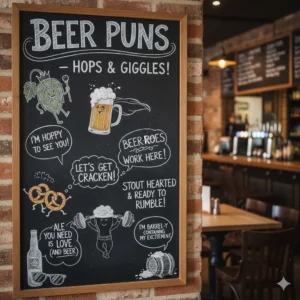 BEER PUNS
– HOPS & GIGGLES!
I'M HOPPY
TO SEE YOU!
BEER ROES
WORK HERE!
LET'S GET
CRACKEN!
STOUT HEARTED
& READY TO
RUMBLE!
ALE
YOU NEED
IS LOVE
(AND BEER)
I'M BARREL-Y
CONTAINING
MY EXCITEMENT!